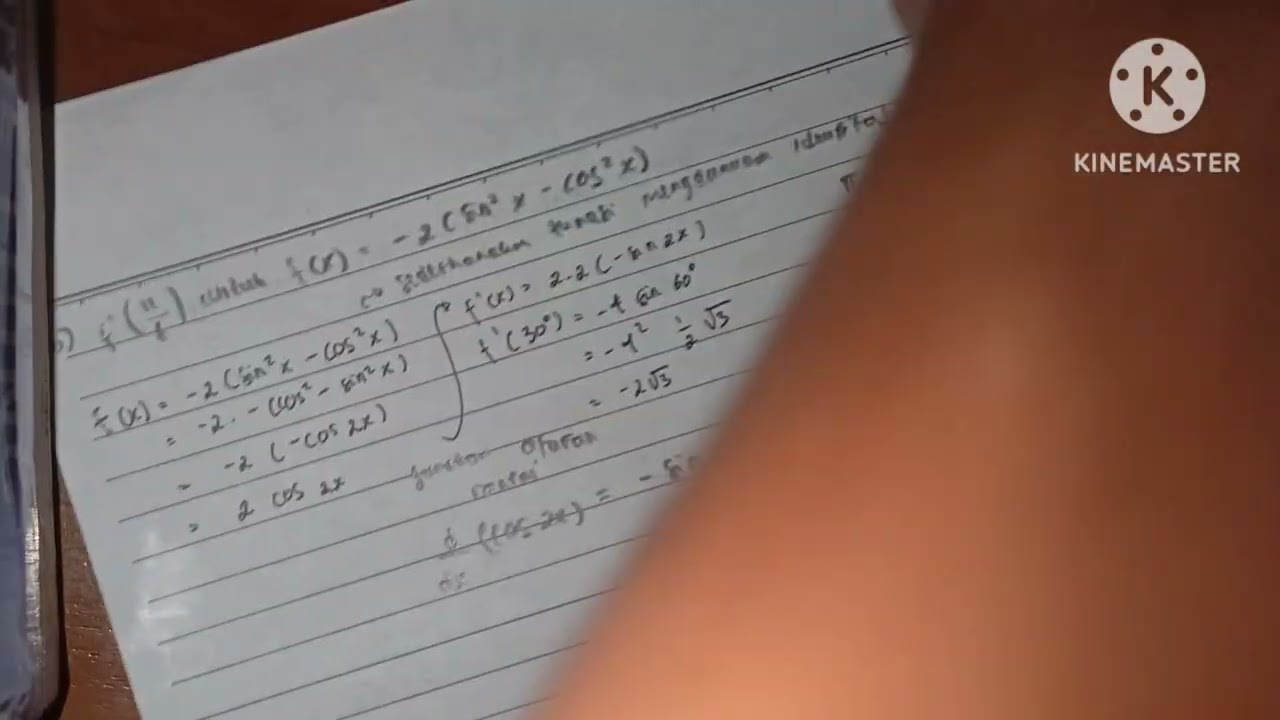 f'(π/6) untuk f(x) = -2 (sin² x - cos² x)
sederhanakan fungsi menggunakan
f(x) = -2 (sin² x - cos² x)
= -2 . - (cos² - sin² x)
= -2 (-cos 2x)
= 2 cos 2x
f'(x) = 2.2 (-sin 2x)
f'(30°) = -4 sin 60°
= -4² ½ √3
= -2√3
gunakan aturan
rantai
d/dx (cos 2x) = - sin
K
KINEMASTER